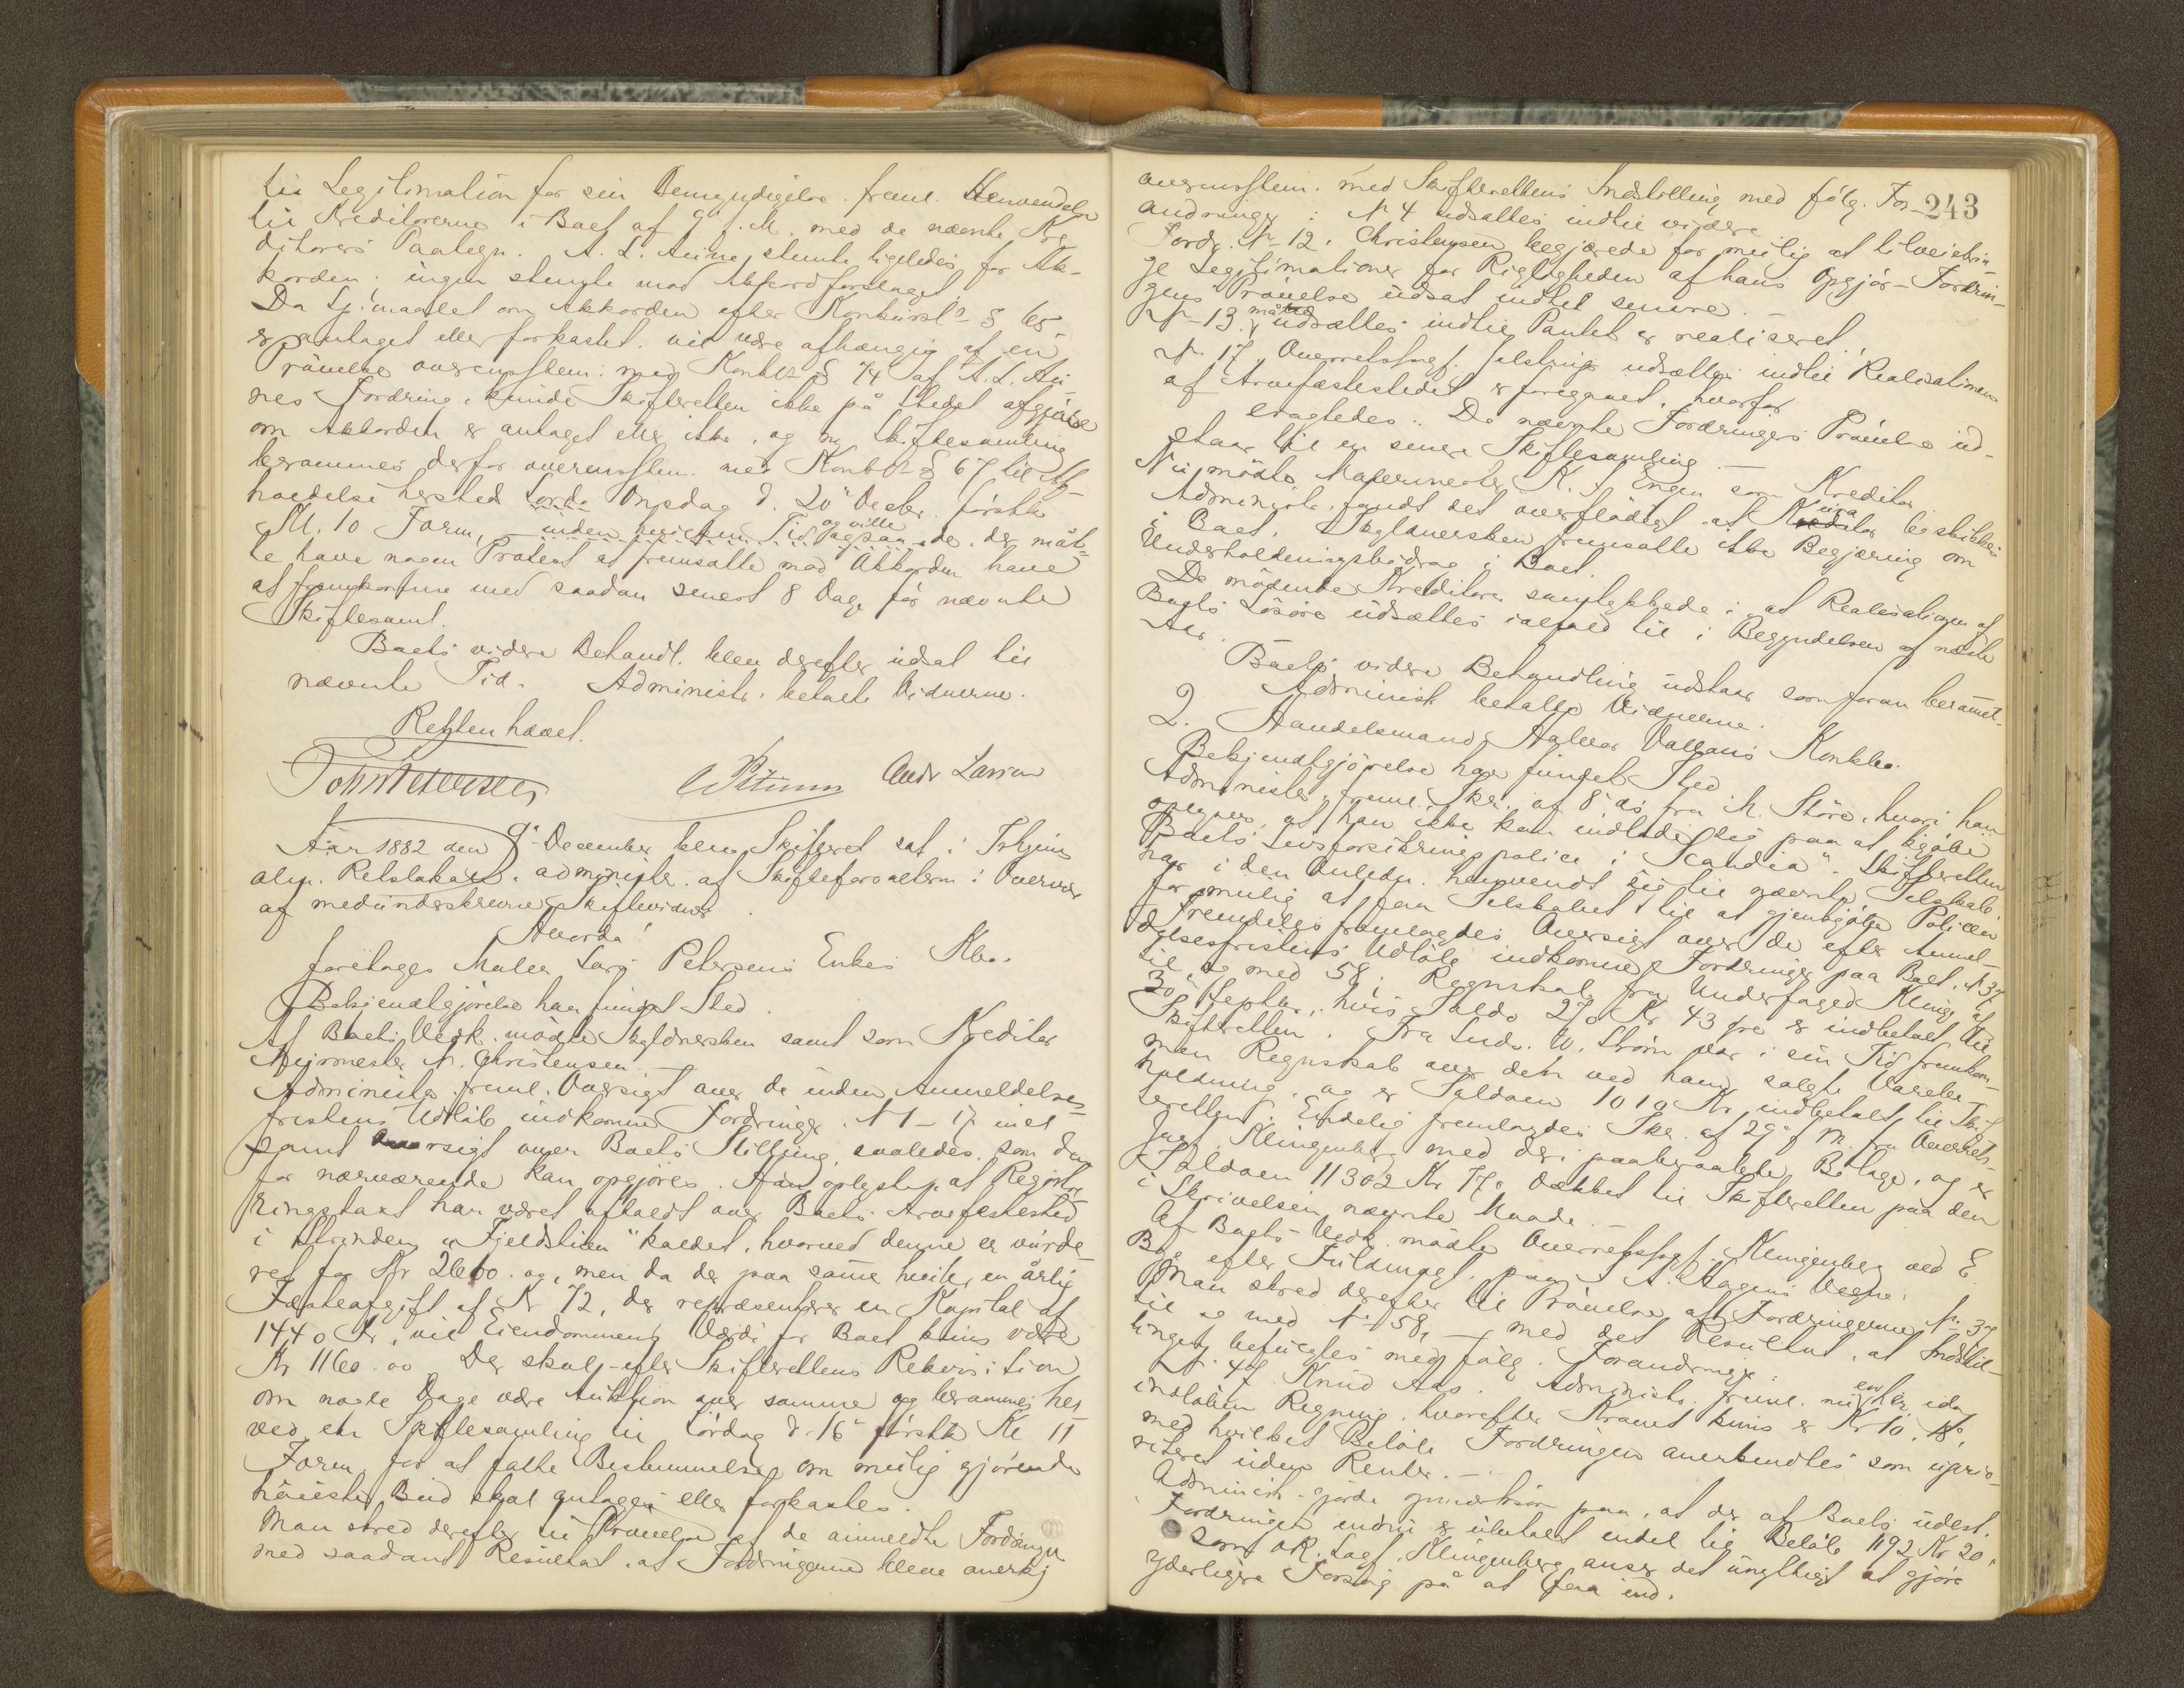 til Legitimation for sin Bemyndigelse freml. Henvendelse
til Kreditorerne i Boet af 9 f. M. med de nævnte Kre-
ditorers Paategn. A. L. stemte ligeledes for Ak-
korden; ingen stemte mod Akkordforslaget.
Da Spørgsmaalet om Akkorden efter Konkursl. § 65
er antaget eller forkastet vil være afhængig af en
Prøvelse overensstem. med Konkl. § 74 af A. L.
nes Fordring, kunde Skifteretten ikke på Stedet afgjøre
om Akkorden er antaget eller ikke, og ny Skiftesamling
berammes derfor overensstem. med Konkl. § 67 til Af-
holdelse hersted Onsdag d. 20de Decbr. førstk.
Kl. 10 Form, inden hvilken Tid og ville de, der måt-
te have nogen Protest at fremsætte mod Akkorden have
at fremkomme med saadan senest 8 Dage før nævnte
Skiftesaml.
Boets videre Behandl. blev derefter udsat til
nævnte Tid. Administr. betalte Vidnerne.
Retten hævet.
Andr Larsen
Aar 1882 den 9de December blev Skifteret sat i Trhjems
alm. Retslokale, administr. af Skifteforvalteren i Overvær
af medunderskrevne Skiftevidner.
Hvorda!
foretoges Maler Lars Petersens Enkes Kbo.
Bekjendtgjørelse har funnet Sted.
Af Boets Vedk. mødte Skyldnersken samt som Kreditor
N. Christensen
Administr. freml. Oversigt over de inden Anmeldelses-
fristens Udløb indkomne Fordringer N 1 - 17 incl
samt Oversigt over Boets Stilling, saaledes som den
for nærværende kan opgjøres. Han oplyste, at Registre-
ringstaxt har været afholdt over Boets Arvefæstested
i Strinden, "Fjeldslien" kaldet, hvorved denne er vurde-
ret for Kr 2600. og, men da der paa samme hviler en årlig
Fæsteafgift af Kr 72, der repræsenterer en Kapital af
1440 Kr, vil Eiendommens Værdi for Boet kuns være
Kr 1160.00 Der skal efter Skifterettens Rekvisition
om nogle Dage være Auktion over samme og berammes her
ved en Skiftesamling til Lørdag d. 16de førstk Kl 11
Form, for at fatte Bestemmelse om mulig gjørende
høieste Bud skal antages eller forkastes.
Man skred derefter til Prøvelse af de anmeldte Fordringer
med saadant Resultat, at Fordringerne bleve anerkj
243
overensstem. med Skifterettens Indstilling med følg. For-
andringer: N 4 udsattes indtil videre
Fordr. N 12. Christensen begjærede for mulig at tilveiebrin-
ge Legitimationer for Rigtigheden af hans Opgjør - Fordrin-
gens Prøvelse udsat indtil senere.
N 13 måtte udsættes indtil Pantet er realiseret.
N. 17, Overretssagf. udsættes indtil Realisationen
af Arvefæstestedet er foregaaet, hvorfor
eragtedes. De nævnte Fordringers Prøvelse ud-
staar til en senere Skiftesamling. -
Nu mødte Malermester K. J. Engen som Kreditor
Administr. fandt det overflødigt at Kurator beskikkes
i Boet. Skyldnersken fremsatte ikke Begjæring om
Underholdningsbidrag i Boet.
De mødende Kreditorer samtykkede i, at Realisationen af
Boets Løsøre udsættes ialfald til i Begyndelsen af næste
Aar.
Boets videre Behandling udstaar som foran berammet.
Administr betalte Vidnerne.
2. Handelsmand Halvor Konkbo.
Bekjendtgjørelse har funnet Sted
Administr. freml. Skr. af 8de ds fra M. Støre, hvori han
opgiver, at han ikke kan indlade sig paa at kjøbe
Boets Livsforsikringspolice i "Scandia". Skifteretten
har i den Anledn. henvendt sig til nævnte Selskab
for mulig at faa Selskabet til at gjenkjøbe Policen
Fremdeles fremlagdes Oversigt over de efter Anmel-
delsesfristens Udløb indkomne Fordringer paa Boet, N 37
til og med 58, Regnskab fra Underfoged Kling af
30 Septbr., hvis Saldo 270 Kr 43 øre er indbetalt til
Skifteretten. Fra Ludv. W. Strøm var i sin Tid fremkom-
men Regnskab over den ved ham solgte Varebe-
holdning, og er Saldoen 1010 Kr indbetalt til Skif-
teretten. Endelig fremlagdes Skr. af 29de f M. fra Overrets-
sagf. Klingenberg med deri paaberaabte Bilage, og er
Saldoen 11302 Kr 17ø. Vækket til Skifteretten paa den
i Skrivelsen nævnte Maade. -
Af Boets Vedk. mødte Overretssagf. Klingenberg ved E.
efter Fuldmagt paa A. Hagens Vegne.
Man skred derefter til Prøvelse af Fordringerne N 37
til og med N 58, - med det Resultat, at Indstil-
lingen befulgtes med følg. Forandringer:
N. 47. Knud Aas. Administr. freml. nu en her idag
indløben Regning, hvorefter Kravet kuns er Kr 10.18,
med hvilket Beløb Fordringen anerkendtes som uprio-
riteret uden Renter. -
Administr. gjorde opmærksom paa, at der af Boets udest.
Fordringer endnu er ubetalt endel til Beløb 1192 Kr 20,
som OR. Sagf. Klingenberg anser det unyttigt at gjøre
yderligere Forsøg på at faa ind.